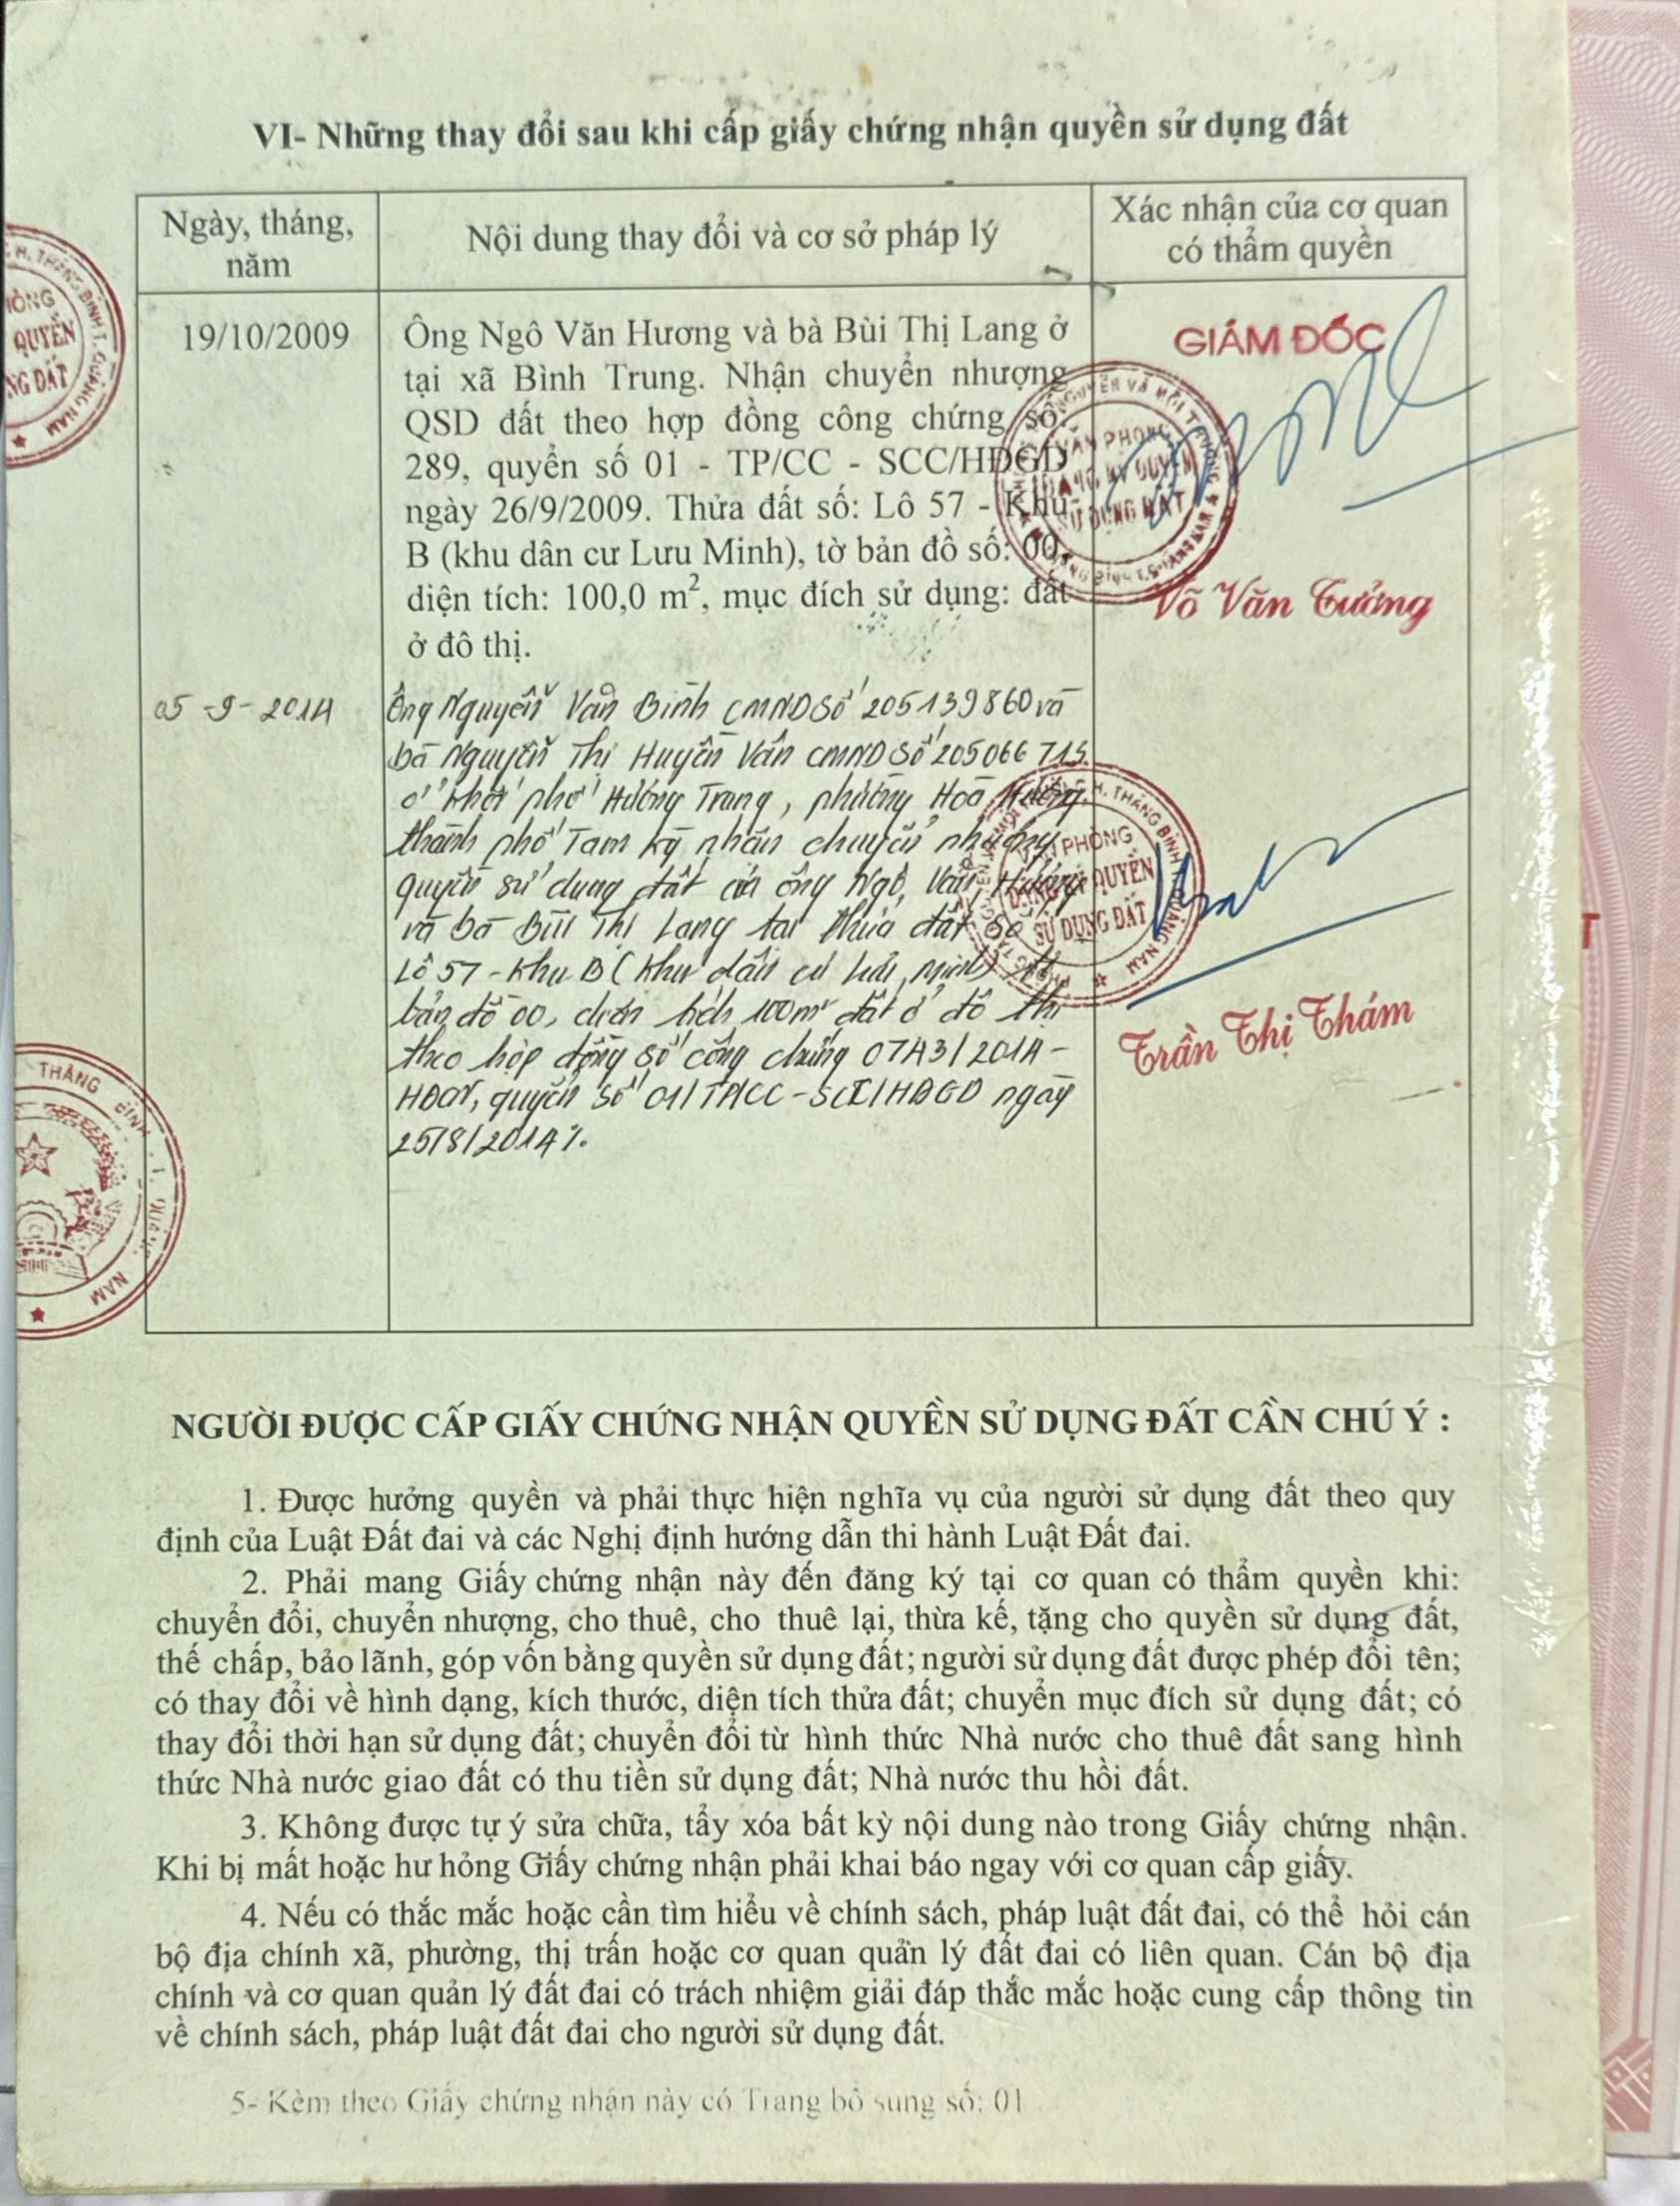 VI- Những thay đổi sau khi cấp giấy chứng nhận quyền sử dụng đất
Ngày, tháng, năm
Nội dung thay đổi và cơ sở pháp lý
Xác nhận của cơ quan có thẩm quyền
19/10/2009
Ông Ngô Văn Hương và bà Bùi Thị Lang ở
tại xã Bình Trung. Nhận chuyển nhượng
QSD đất theo hợp đồng công chứng số:
289, quyển số 01 - TP/CC - SCC/HĐGD
ngày 26/9/2009. Thửa đất số: Lô 57 - Khu
B (khu dân cư Lưu Minh), tờ bản đồ số: 00,
diện tích: 100,0 m², mục đích sử dụng: đất
ở đô thị.
GIÁM ĐỐC
VĂN PHÒNG
ĐĂNG KÝ QUYỀN
SỬ DỤNG ĐẤT
Võ Văn Tưởng
05-9-2014
Ông Nguyễn Văn Bình CMND số 205139860 và
bà Nguyễn Thị Huyền Vân CMND số 205066715
ở khối phố Hương Trang, phường Hoà Hương,
thành phố Tam Kỳ nhận chuyển nhượng
quyền sử dụng đất của ông Ngô Văn Hương
và bà Bùi Thị Lang tại thửa đất số
Lô 57 - Khu B (Khu dân cư Lưu Minh) tờ
bản đồ 00, diện tích 100m² đất ở đô thị
theo hợp đồng số công chứng 0743/2014-
HĐCN, quyển số 01/TP/CC-SCC/HĐGD ngày
25/8/2014%.
VĂN PHÒNG
ĐĂNG KÝ QUYỀN
SỬ DỤNG ĐẤT
H. THĂNG BÌNH T. QUẢNG NAM
Trần Thị Thám
NGƯỜI ĐƯỢC CẤP GIẤY CHỨNG NHẬN QUYỀN SỬ DỤNG ĐẤT CẦN CHÚ Ý :
1. Được hưởng quyền và phải thực hiện nghĩa vụ của người sử dụng đất theo quy
định của Luật Đất đai và các Nghị định hướng dẫn thi hành Luật Đất đai.
2. Phải mang Giấy chứng nhận này đến đăng ký tại cơ quan có thẩm quyền khi:
chuyển đổi, chuyển nhượng, cho thuê, cho thuê lại, thừa kế, tặng cho quyền sử dụng đất,
thế chấp, bảo lãnh, góp vốn bằng quyền sử dụng đất; người sử dụng đất được phép đổi tên;
có thay đổi về hình dạng, kích thước, diện tích thửa đất; chuyển mục đích sử dụng đất; có
thay đổi thời hạn sử dụng đất; chuyển đổi từ hình thức Nhà nước cho thuê đất sang hình
thức Nhà nước giao đất có thu tiền sử dụng đất; Nhà nước thu hồi đất.
3. Không được tự ý sửa chữa, tẩy xóa bất kỳ nội dung nào trong Giấy chứng nhận.
Khi bị mất hoặc hư hỏng Giấy chứng nhận phải khai báo ngay với cơ quan cấp giấy.
4. Nếu có thắc mắc hoặc cần tìm hiểu về chính sách, pháp luật đất đai, có thể hỏi cán
bộ địa chính xã, phường, thị trấn hoặc cơ quan quản lý đất đai có liên quan. Cán bộ địa
chính và cơ quan quản lý đất đai có trách nhiệm giải đáp thắc mắc hoặc cung cấp thông tin
về chính sách, pháp luật đất đai cho người sử dụng đất.
5- Kèm theo Giấy chứng nhận này có Trang bổ sung số: 01